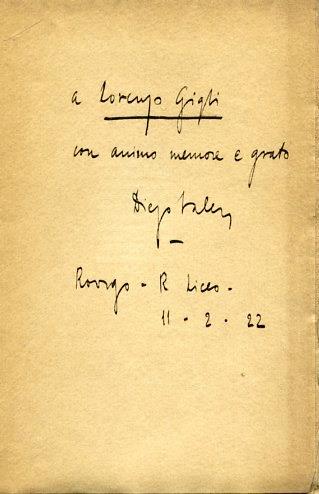 a Lorenzo Gigli
con animo memore e grato
Diego Valeri
Rovigo - R Liceo -
11 - 2 - 22